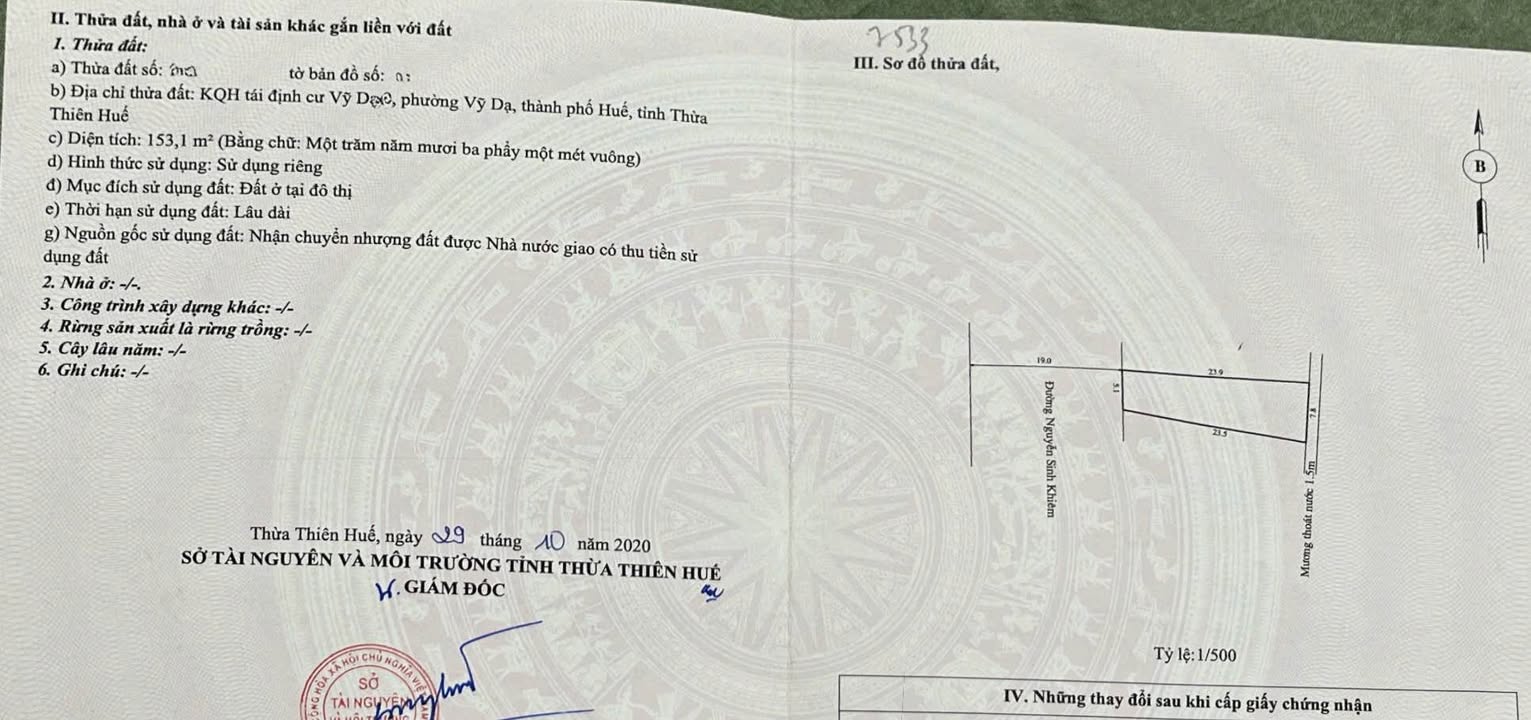 II. Thửa đất, nhà ở và tài sản khác gắn liền với đất
1. Thửa đất:
a) Thửa đất số: tờ bản đồ số:
b) Địa chỉ thửa đất: KQH tái định cư Vỹ Dạ, phường Vỹ Dạ, thành phố Huế, tỉnh Thừa
Thiên Huế
c) Diện tích: 153,1 m² (Bằng chữ: Một trăm năm mươi ba phẩy một mét vuông)
d) Hình thức sử dụng: Sử dụng riêng
đ) Mục đích sử dụng đất: Đất ở tại đô thị
e) Thời hạn sử dụng đất: Lâu dài
g) Nguồn gốc sử dụng đất: Nhận chuyển nhượng đất được Nhà nước giao có thu tiền sử
dụng đất
2. Nhà ở: -/-.
3. Công trình xây dựng khác: -/-
4. Rừng sản xuất là rừng trồng: -/-
5. Cây lâu năm: -/-
6. Ghi chú: -/-
Thừa Thiên Huế, ngày 29 tháng 10 năm 2020
SỞ TÀI NGUYÊN VÀ MÔI TRƯỜNG TỈNH THỪA THIÊN HUẾ
GIÁM ĐỐC
CỘNG HÒA XÃ HỘI CHỦ NGHĨA VIỆT NAM
SỞ
TÀI NGUYÊN
2533
III. Sơ đồ thửa đất,
B
19.0
23.9
5.1
7.8
23.5
Đường Nguyễn Sinh Khiêm
Mương thoát nước 1.5m
Tỷ lệ:1/500
IV. Những thay đổi sau khi cấp giấy chứng nhận